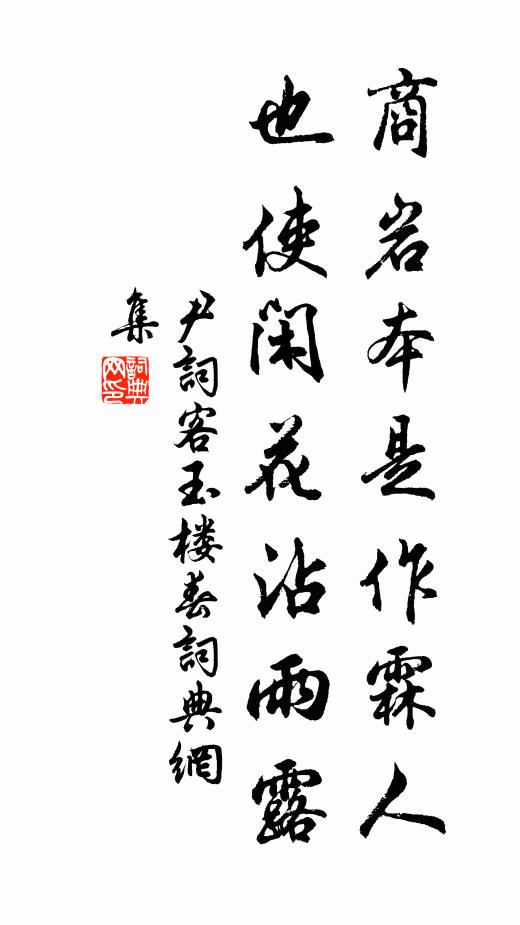 商岩本是作霖人
也使闲花沾雨露
尹詞客玉楼春詞典網
集
詞典网印